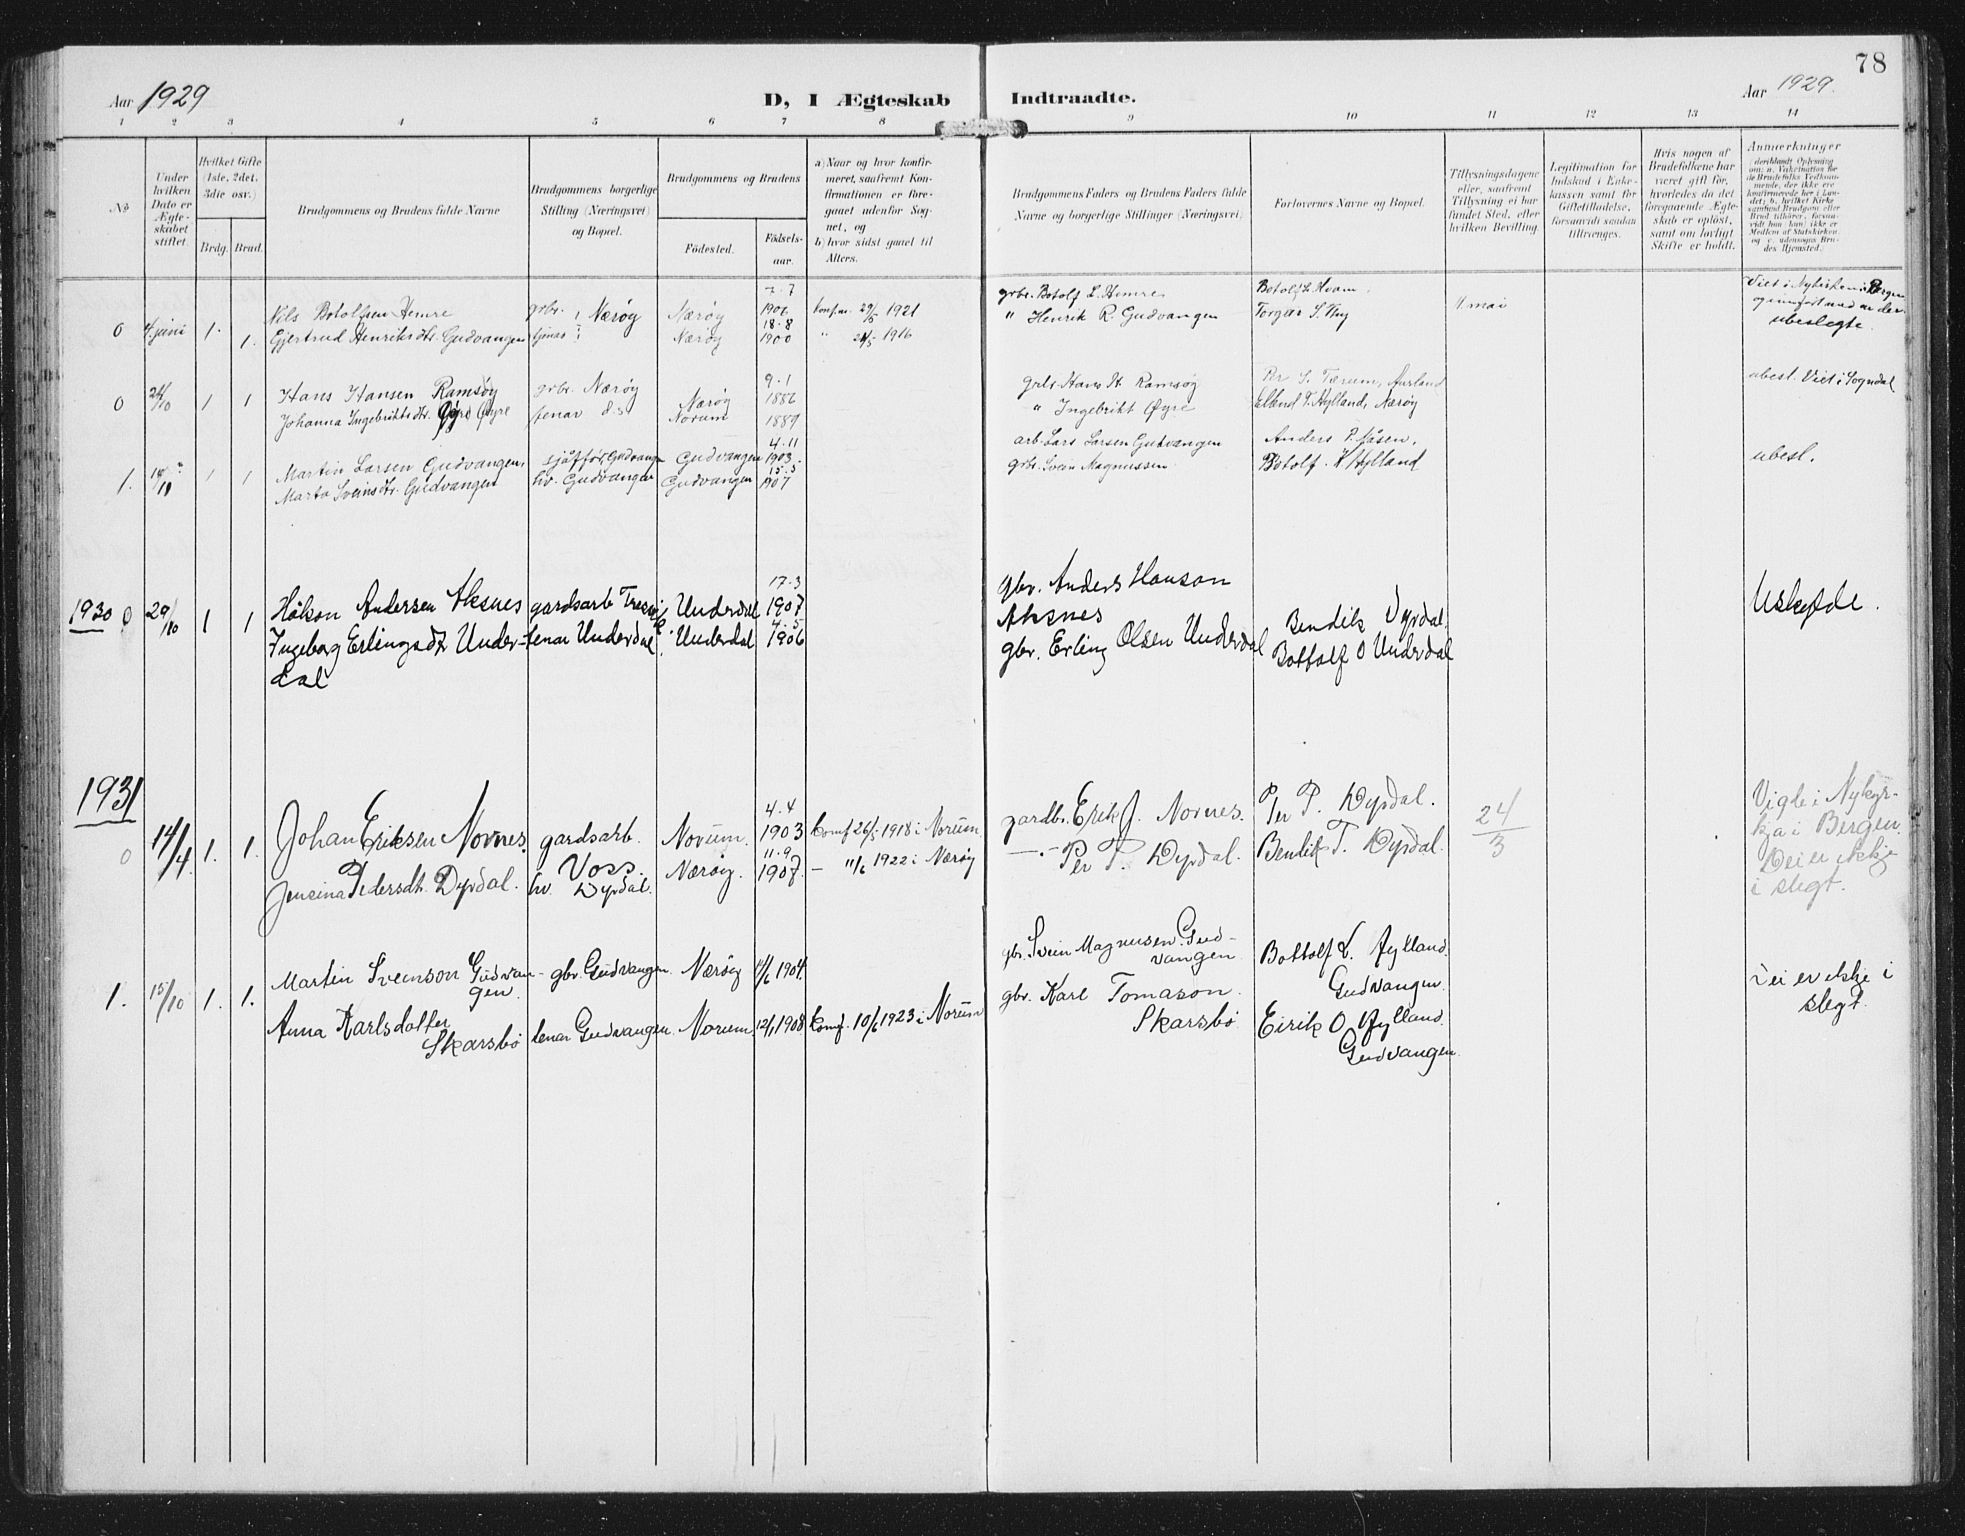 78
Aar 1929
D, I Ægteskab Indtraadte.
Aar 1929.
1 2 3 4 5 6 7 8 9 10 11 12 13 14
No
Under hvilken Dato er Ægteskabet stiftet.
Hvilket Gifte (1ste, 2det, 3die osv.)
Brdg. Brud.
Brudgommens og Brudens fulde Navne
Brudgommens borgerlige Stilling (Næringsvei) og Bopæl.
Brudgommens og Brudens
Fødested.
Fødselsaar.
a) Naar og hvor konfirmeret, saafremt Konfirmationen er foregaaet udenfor Sognet, og
b) hvor sidst gaaet til Alters.
Brudgommens Faders og Brudens Faders fulde Navne og borgerlige Stillinger (Næringsvei).
Forlovernes Navne og Bopæl.
Tillysningsdagene eller, saafremt Tillysning ei har fundet Sted, efter hvilken Bevilling.
Legitimation for Indskud i Enkekassen samt for Giftetilladelse, forsaavidt saadan tiltrænges.
Hvis nogen af Brudefolkene har været gift før, hvorledes da det foregaaende Ægteskab er opløst, samt om lovligt Skifte er holdt.
Anmerkninger
0 4 juni 1. 1.
Nils Botolfsen Hemre
Gjertrud Henriksdtr. Gudvangen
grbr. Nærøy
Nærøy 1906
Nærøy 18.8 1900
konf.
1921
1916
grbr. Botolf L. Hemre
" Henrik R. Gudvangen
11 mai
Viet i Nykirken i Bergen
ubeslegte.
0 26/10 1 1
Hans Hansen Ramsøy
Johanna Ingebriktsdtr. Øyre
grbr. Nærøy
tenar d.s
Nærøy 9.1 1886
Norum 1889
grbr. Hans H. Ramsøy
" Ingebrikt Øyre
Ellend T. Hylland, Nærøy
ubesl. Viet i Sogndal
1. 1 1
Martin Larsen Gudvangen,
Marta Sveinsdtr. Gudvangen
sjåffør, Gudvangen
hv. Gudvangen
Gudvangen 4.11 1903
Gudvangen 15.3 1907
arb. Lars Larsen Gudvangen
grbr. Svein Magnussen
Anders P. Åsen.
Botolf. Hylland
ubesl.
1930 0 29/10 1 1
Håkon Andersen Aksnes
Ingeborg Erlingsdtr Underdal
gardsarb
tenar Underdal
Underdal 17.3 1907
Underdal 4.5 1906
gbr. Anders Hanson
Aksnes
gbr. Erling Olsen Underdal
Bendik Dyrdal.
Bottolf O Underdal
Uskylde.
1931
0 14/4. 1. 1.
Johan Eriksen Nornes.
Jensina Pedersdtr. Dyrdal.
gardsarb.
Voss.
hv. Dyrdal.
Norum. 4.4 1903
Nærøy. 11.9 1907.
konf 26/5 1918 i Norum.
— 11/6 1922 i Nærøy
gardbr. Erik J. Nornes.
—.— Per T. Dyrdal.
Per P. Dyrdal.
Bendik T. Dyrdal.
24/3
Vigde i Nykyrkja i Bergen.
Dei er ikkje
i slegt.
1. 15/10 1. 1.
Martin Sveinson Gudvangen
Anna Karlsdotter
Skarsbø
gbr. Gudvangen
tenar Gudvangen.
Nærøy 1904.
Norum. 12/1 1908
konf. 10/6 1923 i Norum
gbr. Svein Magnusen Gudvangen
gbr. Karl Tomason.
Skarsbø
Bottolf Hylland.
Gudvangen.
Eirik O Hylland.
Gudvangen.
Dei er ikkje i
slegt.